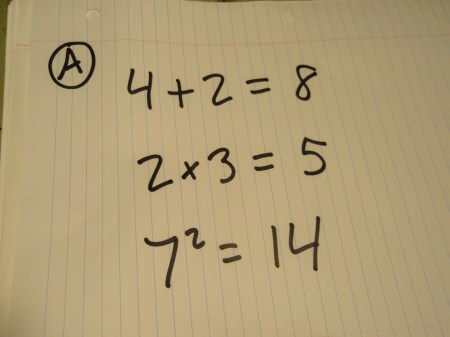 A
4+2=8
2×3=5
7²=14